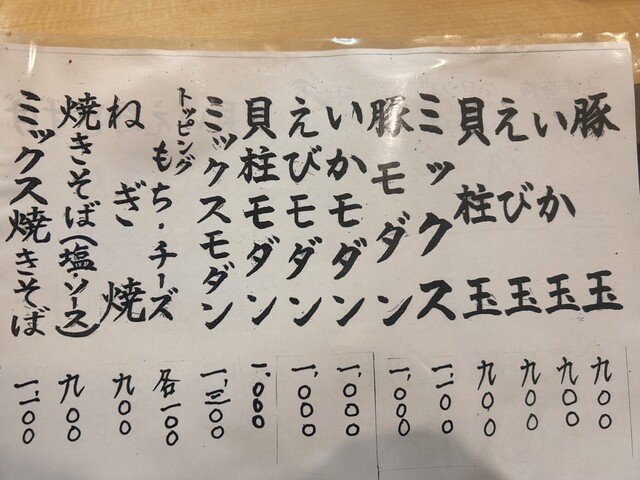 豚玉 九〇〇
いか玉 九〇〇
えび玉 九〇〇
貝柱玉 九〇〇
ミックス 一、一〇〇
豚モダン 一、〇〇〇
いかモダン 一、〇〇〇
えびモダン 一、〇〇〇
貝柱モダン 一、〇〇〇
ミックスモダン 一、三〇〇
トッピング もち・チーズ 各一〇〇
ねぎ焼 九〇〇
焼きそば(塩・ソース) 九〇〇
ミックス焼きそば 一、一〇〇